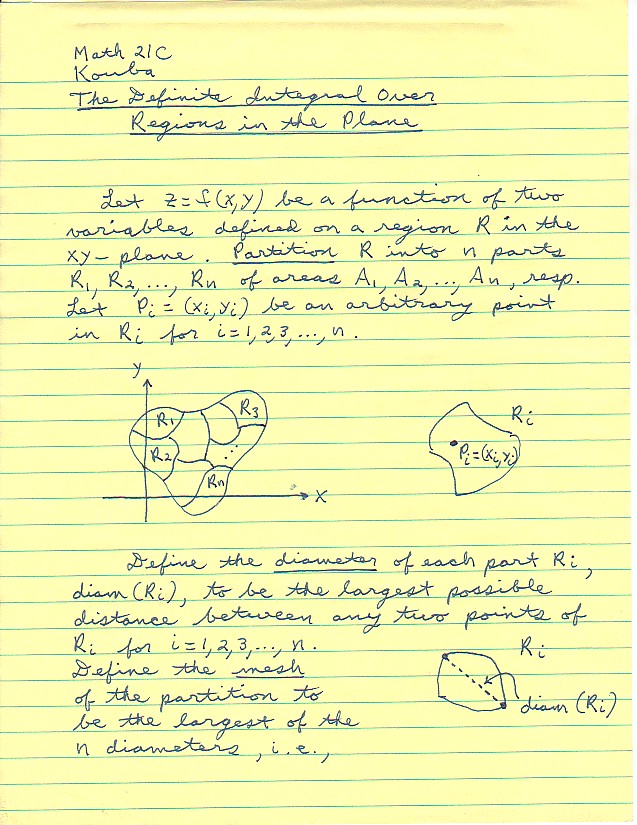 Math 21C
Kouba
The Definite Integral Over
Regions in the Plane
Let z = f(x,y) be a function of two
variables defined on a region R in the
xy-plane. Partition R into n parts
R1, R2, ..., Rn of areas A1, A2, ..., An, resp.
Let Pi = (xi, yi) be an arbitrary point
in Ri for i = 1, 2, 3, ..., n.
Y
R1
R3
R2
...
Rn
X
Ri
Pi = (xi, yi)
Define the diameter of each part Ri,
diam (Ri), to be the largest possible
distance between any two points of
Ri for i = 1, 2, 3, ..., n.
Define the mesh
of the partition to
be the largest of the
n diameters, i.e.,
Ri
diam (Ri)